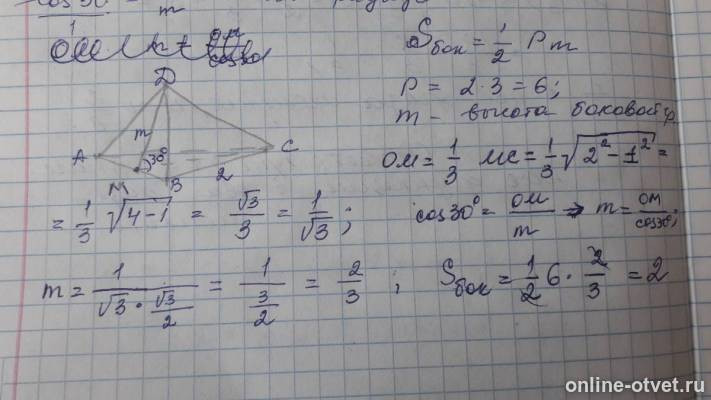 cos30°
m
S бок = 1/2 Pm
P = 2·3 = 6;
m - высота боковой гр.
D
m
30°
A
C
M
B
2
OM = 1/3 MC = 1/3 √(2² - 1²) =
= 1/3 √(4-1) = √3/3 = 1/√3 ;
cos30° = OM/m ⇒ m = OM/cos30° ;
m = 1/(√3 · √3/2) = 1/(3/2) = 2/3 ;
S бок = 1/2 6 · 2/3 = 2
online-otvet.ru